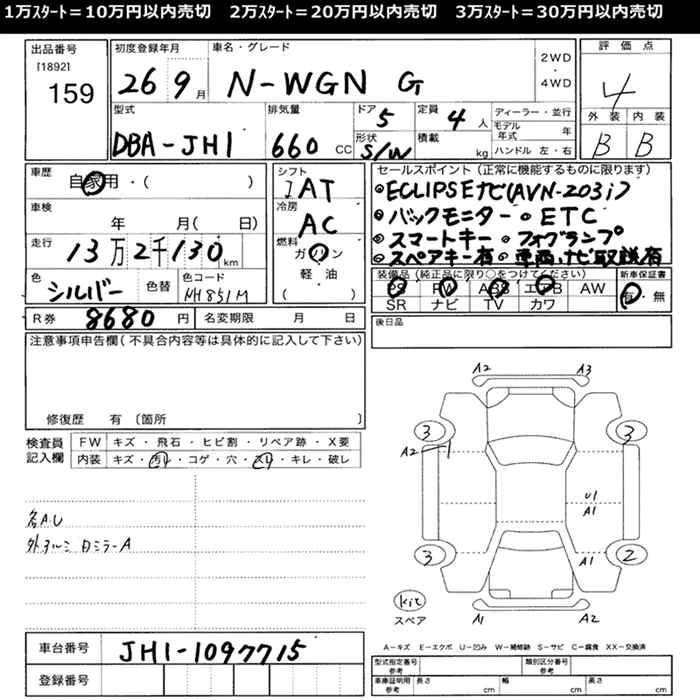 1万ｽﾀｰﾄ＝10万円以内売切　2万ｽﾀｰﾄ＝20万円以内売切　3万ｽﾀｰﾄ＝30万円以内売切
出品番号
[1892]
159
初度登録年月
26 9月
車名・グレード
N-WGN G
2WD
・
4WD
評価点
4
外装 内装
B B
型式
DBA-JH1
排気量
660 CC
ドア
5
形状
S/W
定員
4 人
積載
kg
ディーラー・並行
モデル年式 年
ハンドル 左・右
車歴
自家用・( )
車検
年 月( 日)
走行
13万2千130 km
色
シルバー
色替
色コード
NH851M
シフト
AT
冷房
AC
燃料
ガソリン
軽油
( )
セールスポイント（正常に機能するものに限ります）
ECLIPSEナビ(AVN-203i)
バックモニター ETC
スマートキー フォグランプ
スペアキー有 車両、ナビ取説有
装備品（純正品に限り○をつけてください）
PS PW ABS エアB AW
SR ナビ TV カワ
新車保証書
有・無
R券 8680 円
名変期限 月 日
後日品
注意事項申告欄（不具合内容等は具体的に記入して下さい）
修復歴 有〔箇所 〕
検査員記入欄
FW キズ・飛石・ヒビ割・リペア跡・X要
内装 キズ・汚れ・コゲ・穴・スレ・キレ・破レ
各AU
A2 A3
3 3
A2
U1
A1
3 A1 2
kit
スペア
A1 A2
A-キズ E-エクボ U-凹み W-補修跡 S-サビ C-腐食 XX-交換済
車台番号
JH1-1097715
登録番号
型式指定番号
参考
類別区分番号
参考
車庫証明用
参考
長さ cm 幅 cm 高さ cm